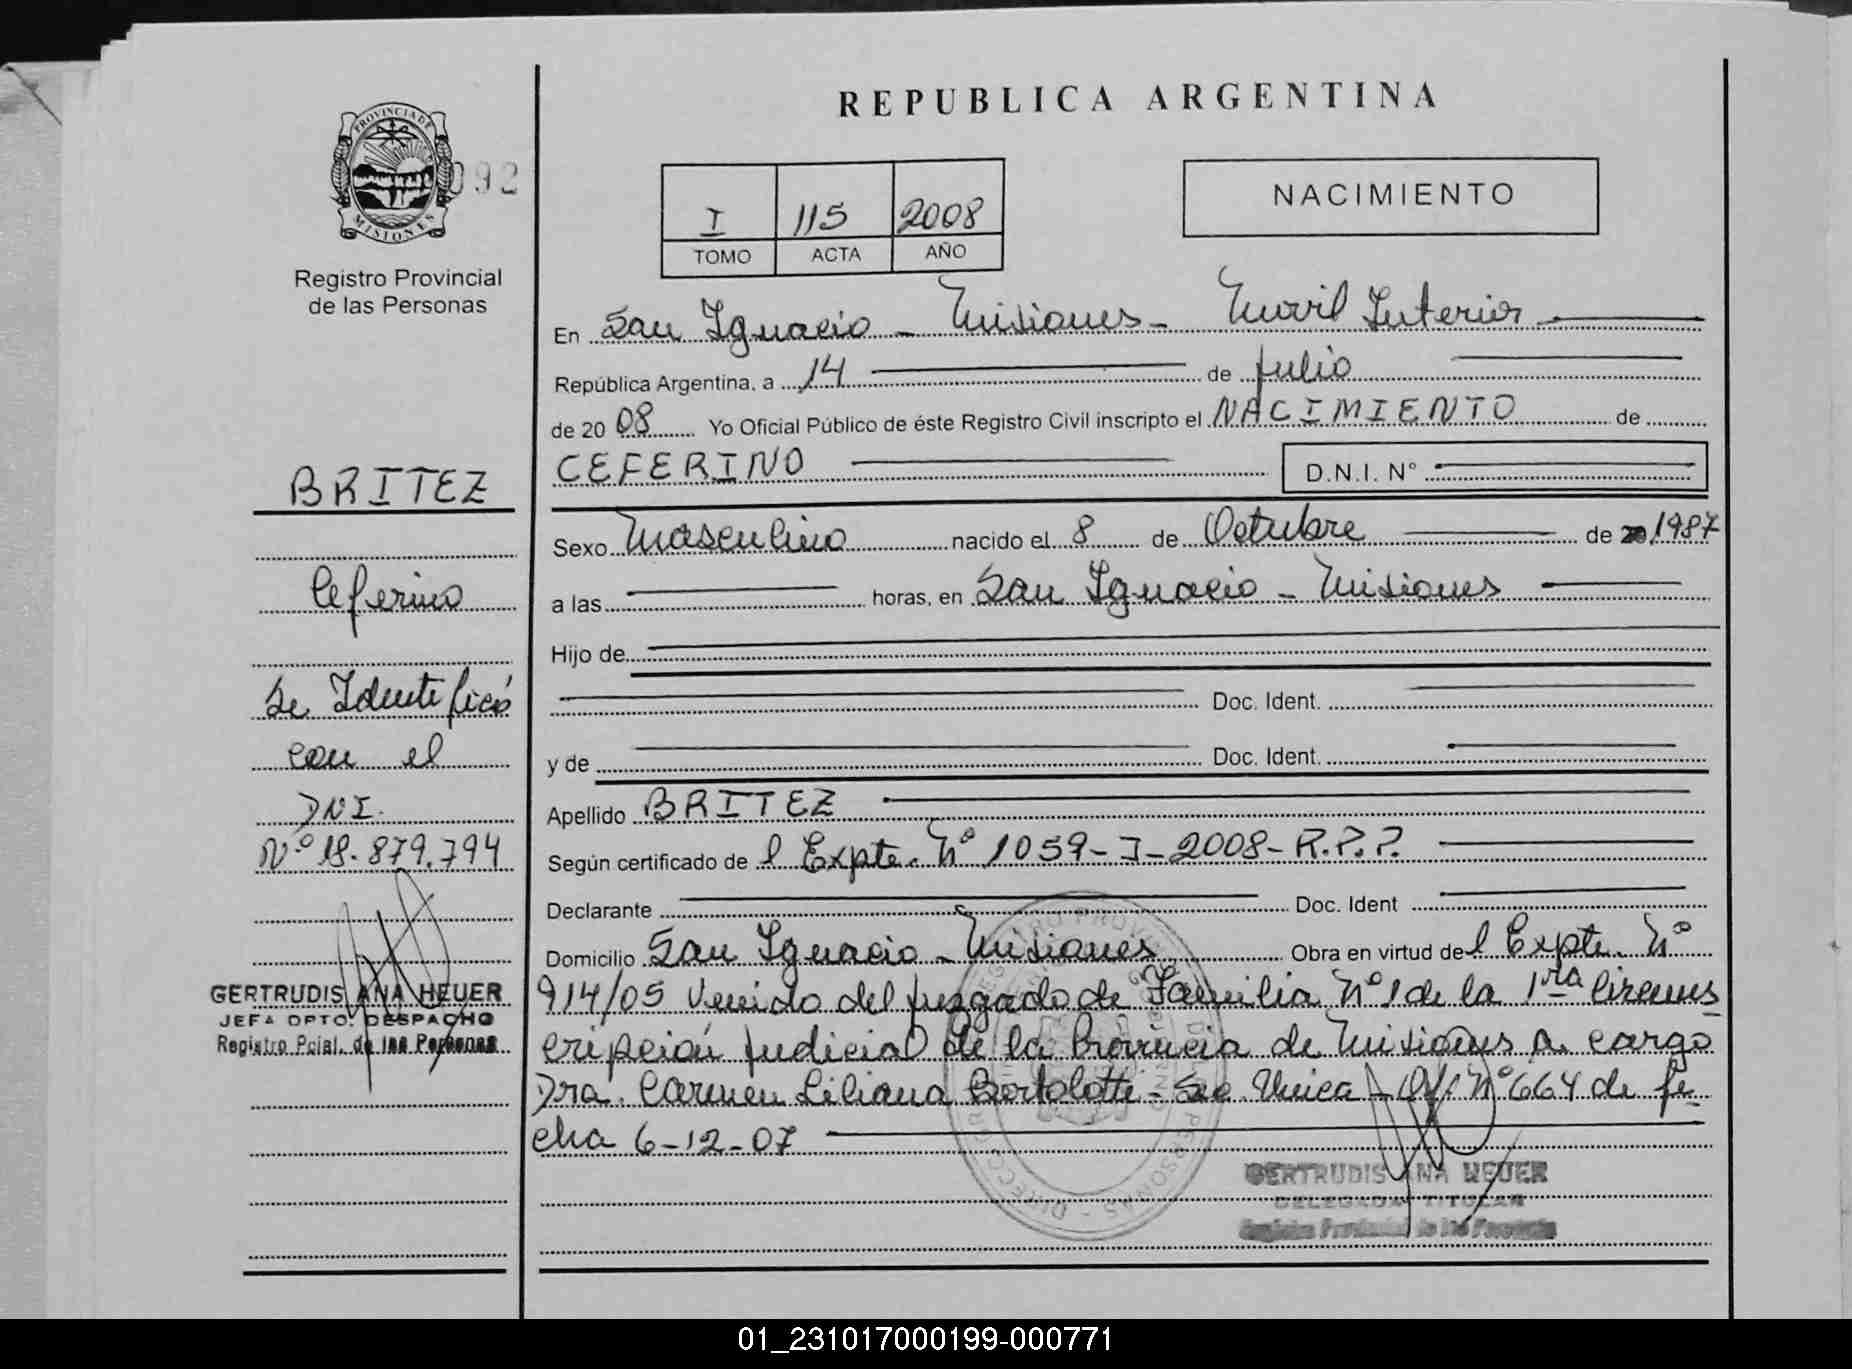 REPUBLICA ARGENTINA
PROVINCIA DE
MISIONES
092
Registro Provincial
de las Personas
I 115 2008
TOMO ACTA AÑO
NACIMIENTO
En San Ignacio - Misiones - Movil Interior
República Argentina, a 14 de Julio
de 20 08 Yo Oficial Público de éste Registro Civil inscripto el NACIMIENTO de
CEFERINO D.N.I. N°
Sexo Masculino nacido el 8 de Octubre de 1987
a las horas, en San Ignacio - Misiones
Hijo de
Doc. Ident.
y de Doc. Ident.
Apellido BRITEZ
Según certificado de l Expte. Nº 1059-I-2008-R.P.P.
Declarante Doc. Ident
Domicilio San Ignacio - Misiones Obra en virtud de l Expte. Nº
914/05 Venido del Juzgado de Familia Nº 1 de la 1ra Circuns
cripción Judicial de la Provincia de Misiones a cargo
Dra. Carmen Liliana Bortolotti - Sec. Unica - Of. Nº 664 de fe
cha 6-12-07
GERTRUDIS ANA HEUER
DELEGADA TITULAR
Registro Provincial de las Personas
BRITEZ
Ceferino
Se Identificó
con el
DNI.
Nº 18.879.794
GERTRUDIS ANA HEUER
JEFA DPTO. DESPACHO
Registro Pcial. de las Personas
01_231017000199-000771